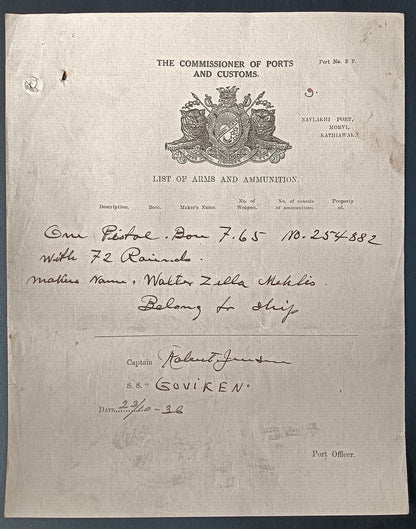 THE COMMISSIONER OF PORTS
AND CUSTOMS.
Port No. 2 F.
NAVLAKHI PORT,
MORVI,
KATHIAWAR.
LIST OF ARMS AND AMMUNITION.
Description. Bore. Maker's Name. No. of Weapon. No. of rounds of ammunitions. Property of.
One Pistol. Bou 7.65 No. 254882
with 72 Raunds.
makers Name, Walter Zella Mehlis.
Belong to ship
Captain Robert Jensen
S. S. "GOVIKEN.
DATE 23/10-36
Port Officer.